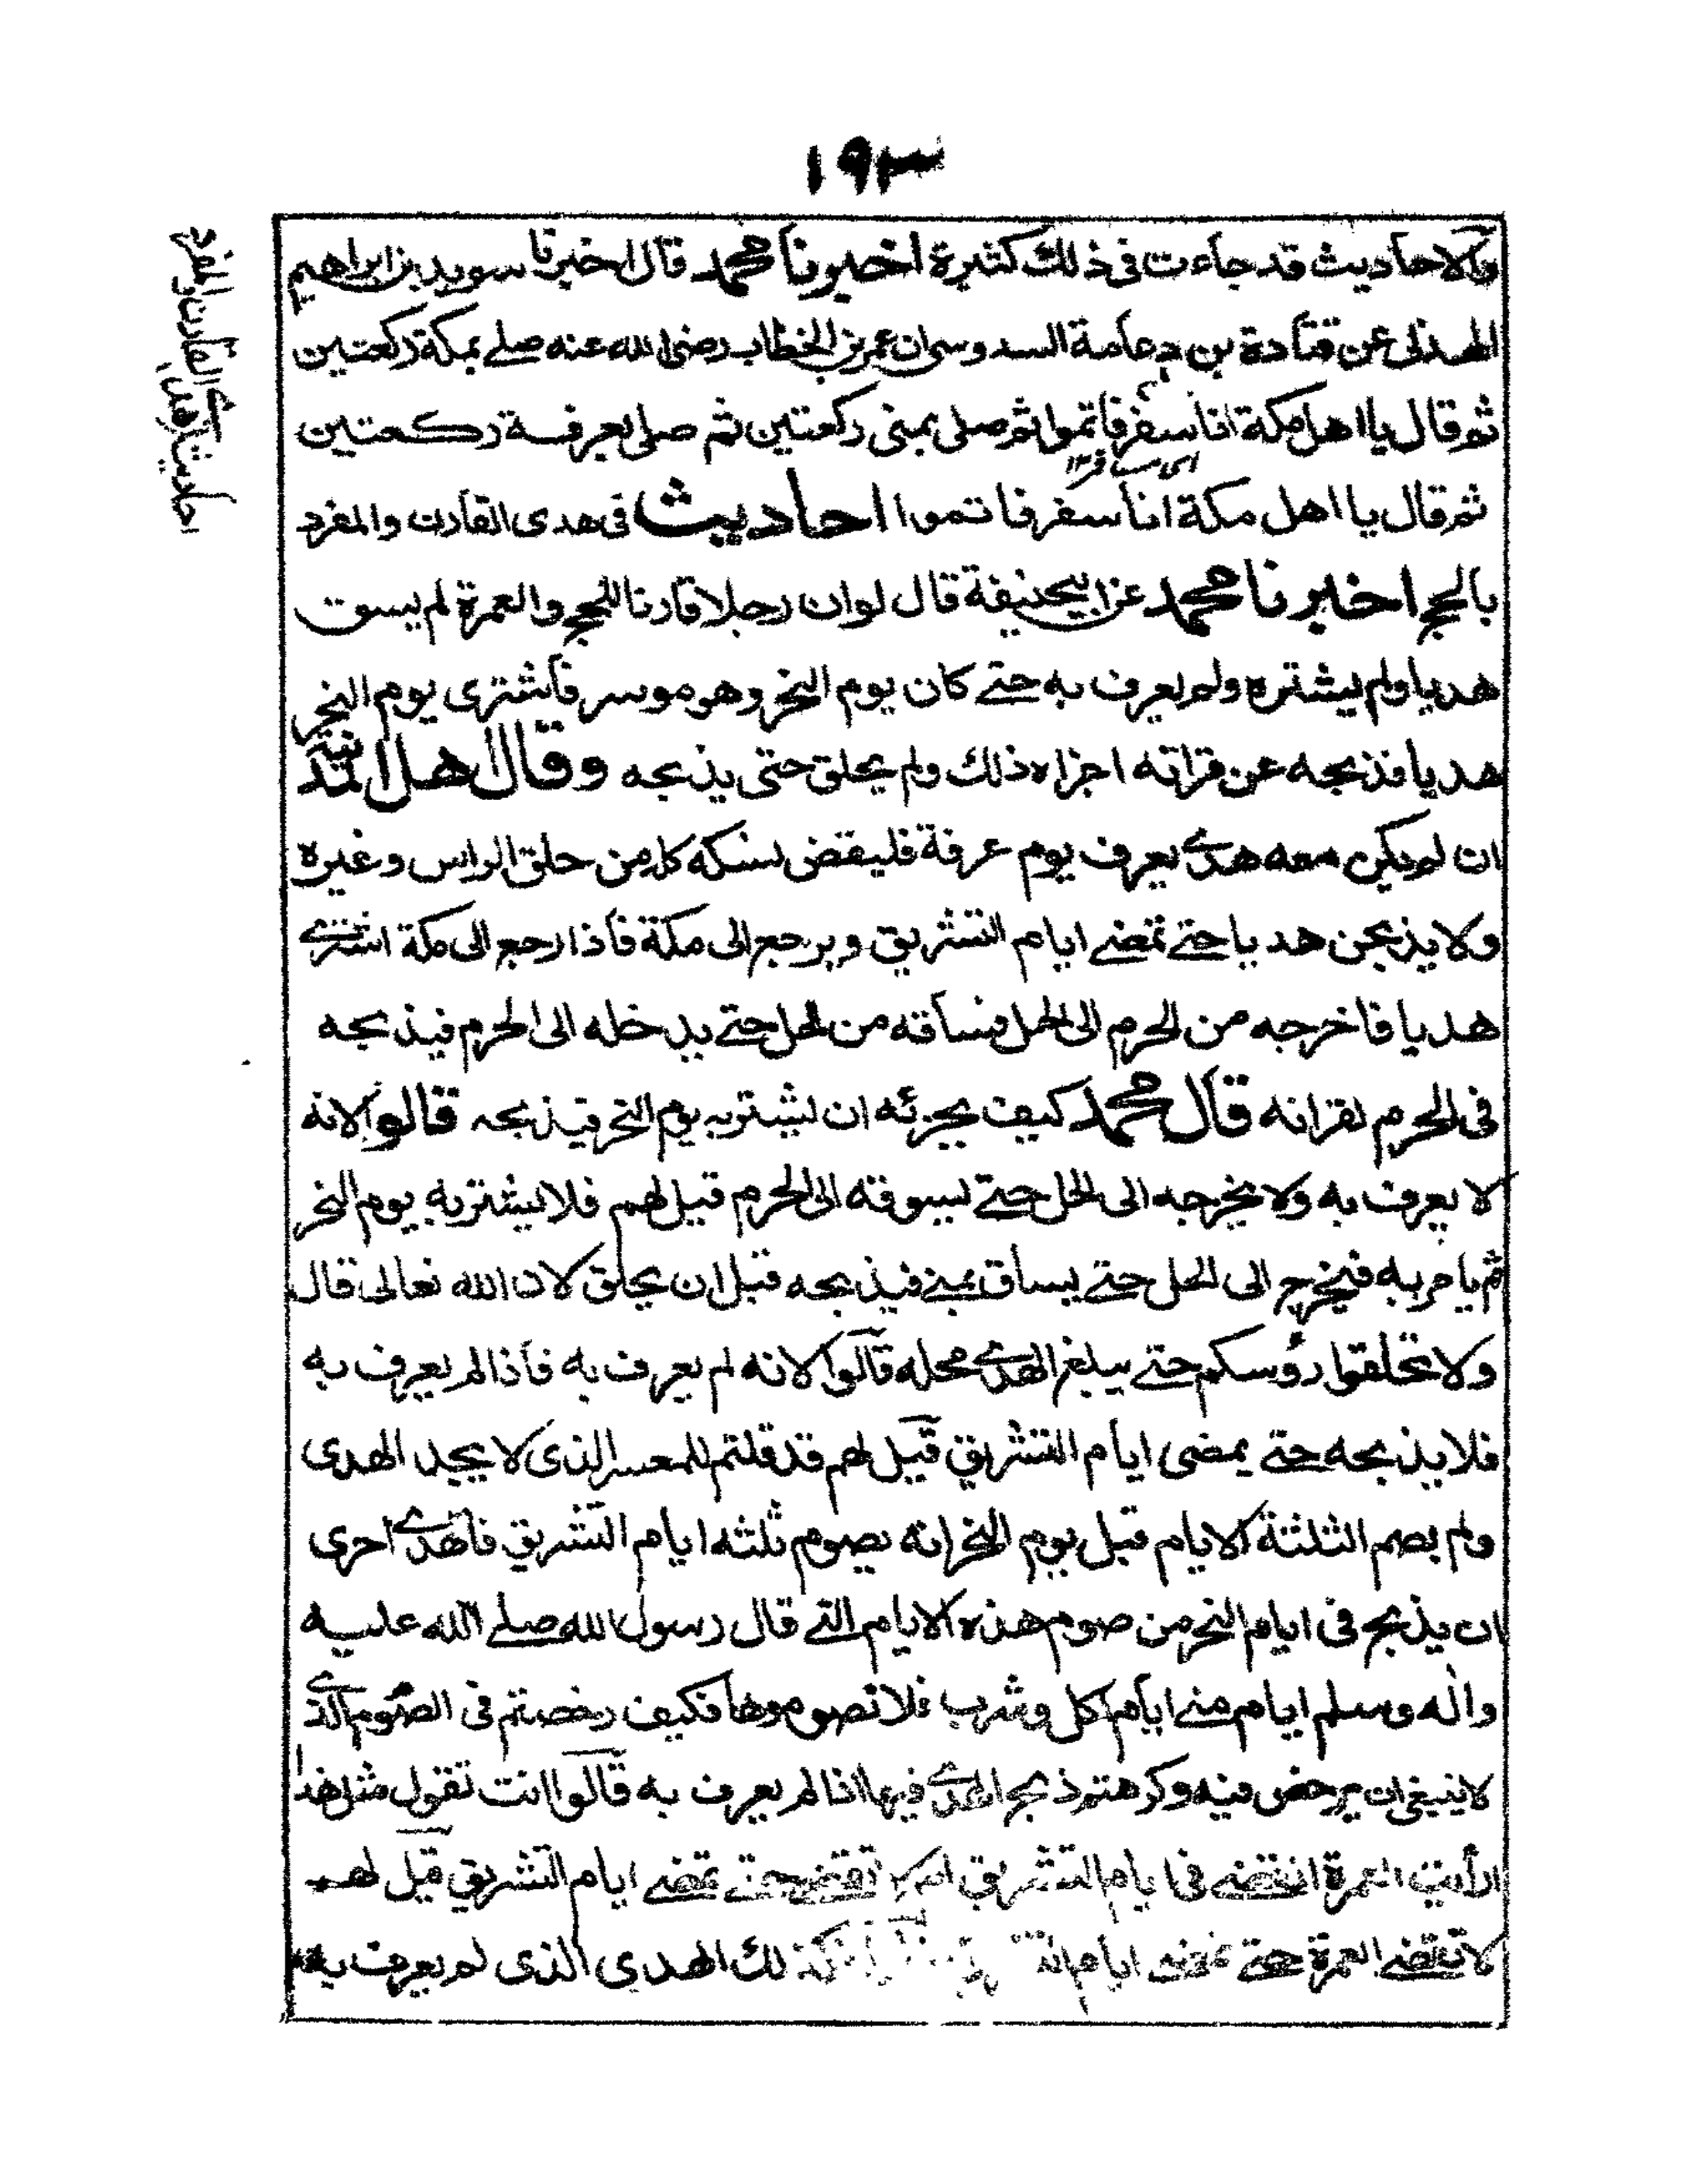 ١٩٣
والاحاديث قد جاءت فى ذلك كثيرة اخبرنا محمد قال اخبرنا سويد بن ابراهيم
الهذلى عن قتادة بن دعامة السدوسى ان عمر بن الخطاب رضى الله عنه صلے بمكة ركعتين
ثم قال يا اهل مكة انا سفر فاتموا ثم صلى بمنى ركعتين ثم صلى بعرفة ركعتين
اى مسافر١٢
ثم قال يا اهل مكة انا سفر فاتموا احاديث فى هدى القارن والمفرد
بالحج اخبرنا محمد عن ابيحنيفة قال لوان رجلا قارنا للحج والعمرة لم يسق
هديا ولم يشتره ولم يعرف به حتے كان يوم النحر وهو موسر فاشترى يوم النحر
هديا فذبحه عن قرانه اجزاه ذلك ولم يحلق حتى يذبحه وقال اهل المدينة
ان لم يكن معه هدے يعرف يوم عرفة فليقض نسكه كله من حلق الراس وغيره
ولا يذبحن هديا حتے تمضے ايام التشريق ويرجع الى مكة فاذا رجع الى مكة اشترے
هديا فاخرجه من الحرم الى الحل فساقه من الحل حتے يدخله الى الحرم فيذبحه
فى الحرم لقرانه قال محمد كيف يجزئه ان يشتريه يوم النحر فيذبحه قالوا لانه
لا يعرف به ولا يخرجه الى الحل حتے يسوقه الى الحرم قيل لهم فلا يشتريه يوم النحر
ثم يامر به فيخرج الى الحل حتے يساق بمنے فيذبحه قبل ان يحلق لان الله تعالى قال
ولا تحلقوا رؤسكم حتے يبلغ الهدے محله قالوا لانه لم يعرف به فاذا لم يعرف به
فلا يذبحه حتے يمضى ايام التشريق قيل لهم قد قلتم للمعسر الذى لا يجد الهدى
ولم يصم الثلثة الايام قبل يوم النحر انه يصوم ثلثه ايام التشريق فالهدے احرى
ان يذبح فى ايام النحر من صوم هذه الايام التے قال رسول الله صلے الله عليه
واله وسلم ايام منے ايام اكل وشرب فلا تصوموها فكيف رخصتم فى الصوم الذے
لا ينبغى ان يرخص فيه وكرهتم ذبح الهدے فيها اذا لم يعرف به قالوا انت تقول مثل هذا
ارأيت العمرة اتقضے فى ايام التشريق ام لا تقضے حتے تمضے ايام التشريق قيل لهم
لا تقضے العمرة حتے تمضے ايام لك الهدى الذى لم يعرف به
احاديث فى هدى القارن والمفرد